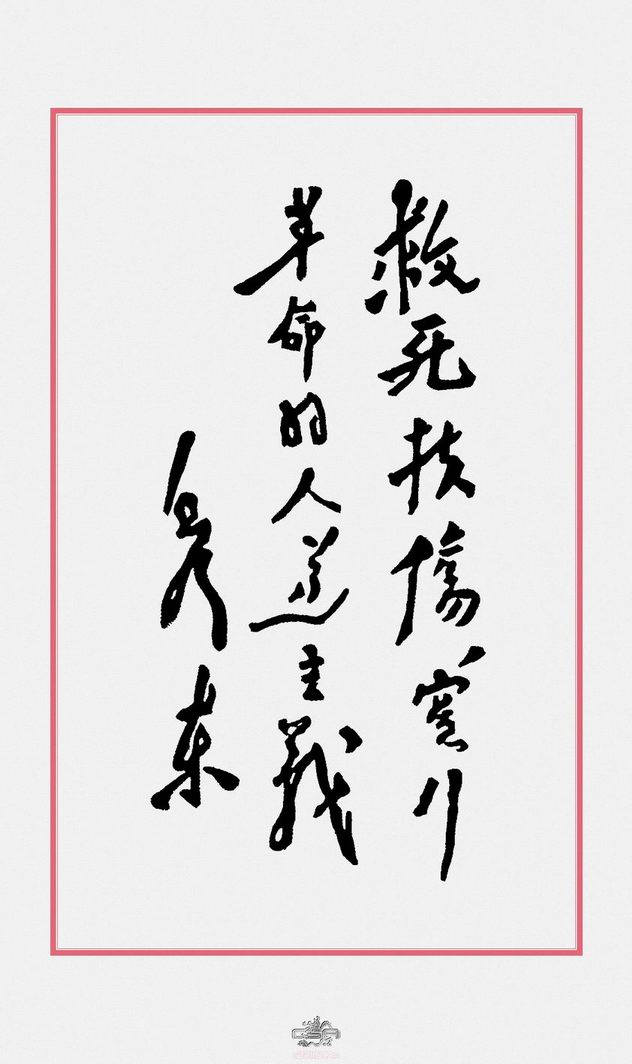 救死扶傷實行
革命的人道主義
毛澤东